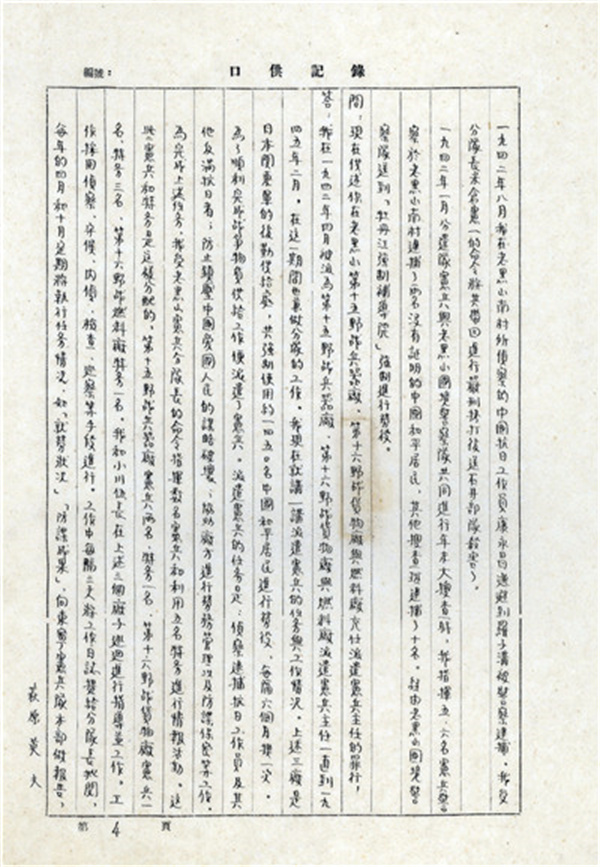 口供記錄
編號：
一九四二年八月我在老黑山南村所偵察的中國抗日工作員康永昌逃避到羅子溝被警察逮捕，我受
分隊長米倉憲一的命令將其帶回進行嚴刑拷打後送石井部隊殺害了。
一九四三年一月分遣隊憲兵與老黑山國境警察隊共同進行年末大搜查時，我指揮五、六名憲兵警
察於老黑山南村逮捕了兩名沒有証明的中國和平居民，其他搜查班逮捕了十名。經由老黑山國境警
察隊送到「牡丹江強制補導院」強制進行勞役。
問：現在供述你在老黑山第十五野戰兵器廠、第十六野戰貨物廠與燃料廠充任派遣憲兵主任的罪行，
答：我在一九四三年四月被派為第十五野戰兵器廠、第十六野戰貨物廠與燃料廠派遣憲兵主任一直到一九
四五年二月。在這一期間也兼做分隊的工作。我現在就講一講派遣憲兵的任務與工作情況。上述三廠是
日本關東軍的後勤供給廠，共強制使用約一四五〇名中國和平居民進行勞役，每隔六個月換一次。
為了順利完成軍物資供給工作便派遣了憲兵。派遣憲兵的任務是：偵察逮捕抗日工作員及其
他反滿抗日者；防止鎮壓中國愛國人民的謀略破壞；協助廠方進行勞務管理以及防諜保密等工作。
為完成上述任務，我受老黑山憲兵分隊長的命令指揮數名憲兵和利用五名特務進行情報活動。這
些憲兵和特務是這樣分配的，第十五野戰兵器廠憲兵兩名、特務一名；第十六野戰貨物廠憲兵一
名、特務三名、第十六野戰燃料廠特務一名。我和小川伍長在上述三個廠子巡迴進行指導並工作。工
作採用偵察、守候、內偵、檢查、巡察等手段進行。工作中每隔三天將工作日誌獎給分隊長批閱，
每年的四月和十月定期將執行任務情況，如「就勞狀況」「防諜成果」，向東寧憲兵隊本部做報告，
萩原英夫
第4頁